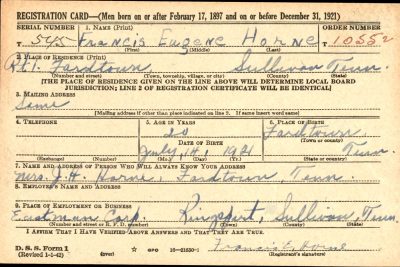 REGISTRATION CARD—(Men born on or after February 17, 1897 and on or before December 31, 1921)
SERIAL NUMBER 1. NAME (Print) ORDER NUMBER
Francis Eugene Horne 10552
(First) (Middle) (Last)
2. PLACE OF RESIDENCE (Print)
Rt. 1. Fordtown Sullivan Tenn.
(Number and street) (Town, township, village, or city) (County) (State)
[THE PLACE OF RESIDENCE GIVEN ON THE LINE ABOVE WILL DETERMINE LOCAL BOARD
JURISDICTION; LINE 2 OF REGISTRATION CERTIFICATE WILL BE IDENTICAL]
3. MAILING ADDRESS
Same
[Mailing address if other than place indicated on line 2. If same insert word same]
4. TELEPHONE 5. AGE IN YEARS 6. PLACE OF BIRTH
20 Fordtown
DATE OF BIRTH (Town or county)
July 14, 1921 Tenn.
(Exchange) (Number) (Mo.) (Day) (Yr.) (State or country)
7. NAME AND ADDRESS OF PERSON WHO WILL ALWAYS KNOW YOUR ADDRESS
Mrs. J. H. Horne, Fordtown, Tenn.
8. EMPLOYER'S NAME AND ADDRESS
9. PLACE OF EMPLOYMENT OR BUSINESS
Eastman Corp. Kingsport, Sullivan, Tenn.
(Number and street or R. F. D. number) (Town) (County) (State)
I AFFIRM THAT I HAVE VERIFIED ABOVE ANSWERS AND THAT THEY ARE TRUE.
D. S. S. Form 1 GPO 16—21630-1 Francis E. Horne
(Revised 1-1-42) (over) (Registrant's signature)